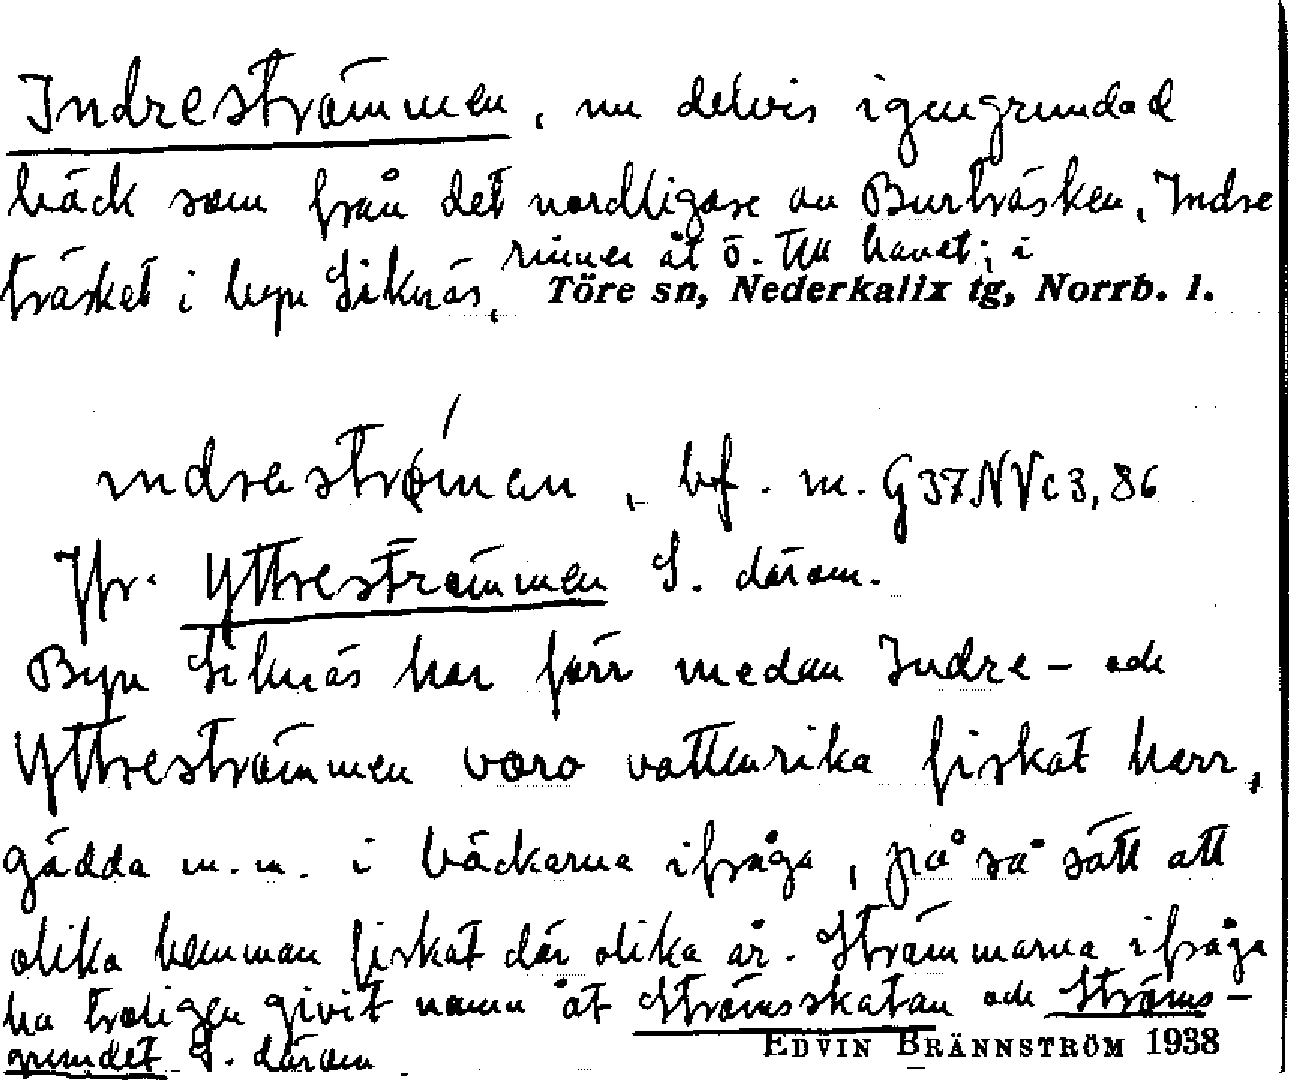 Indreströmmen, nu delvis igengrundad
bäck som från det nordligare av Burträsken, Indre
träsket i byn Siknäs, rinner åt ö. till havet; i
Töre sn, Nederkalix tg, Norrb. l.
ındreströman, bf. m. G37NVc3,86
Jfr. Yttreströmmen S. därom.
Byn Siknäs har förr medan Indre- och
Yttreströmmen voro vattenrika fiskat harr,
gädda m.m. i bäckarna ifråga, på så sätt att
olika hemman fiskat där olika år. Strömmarna ifråga
ha troligen givit namn åt Strömsskatan och Ströms-
grundet S. därom
EDVIN BRÄNNSTRÖM 1938